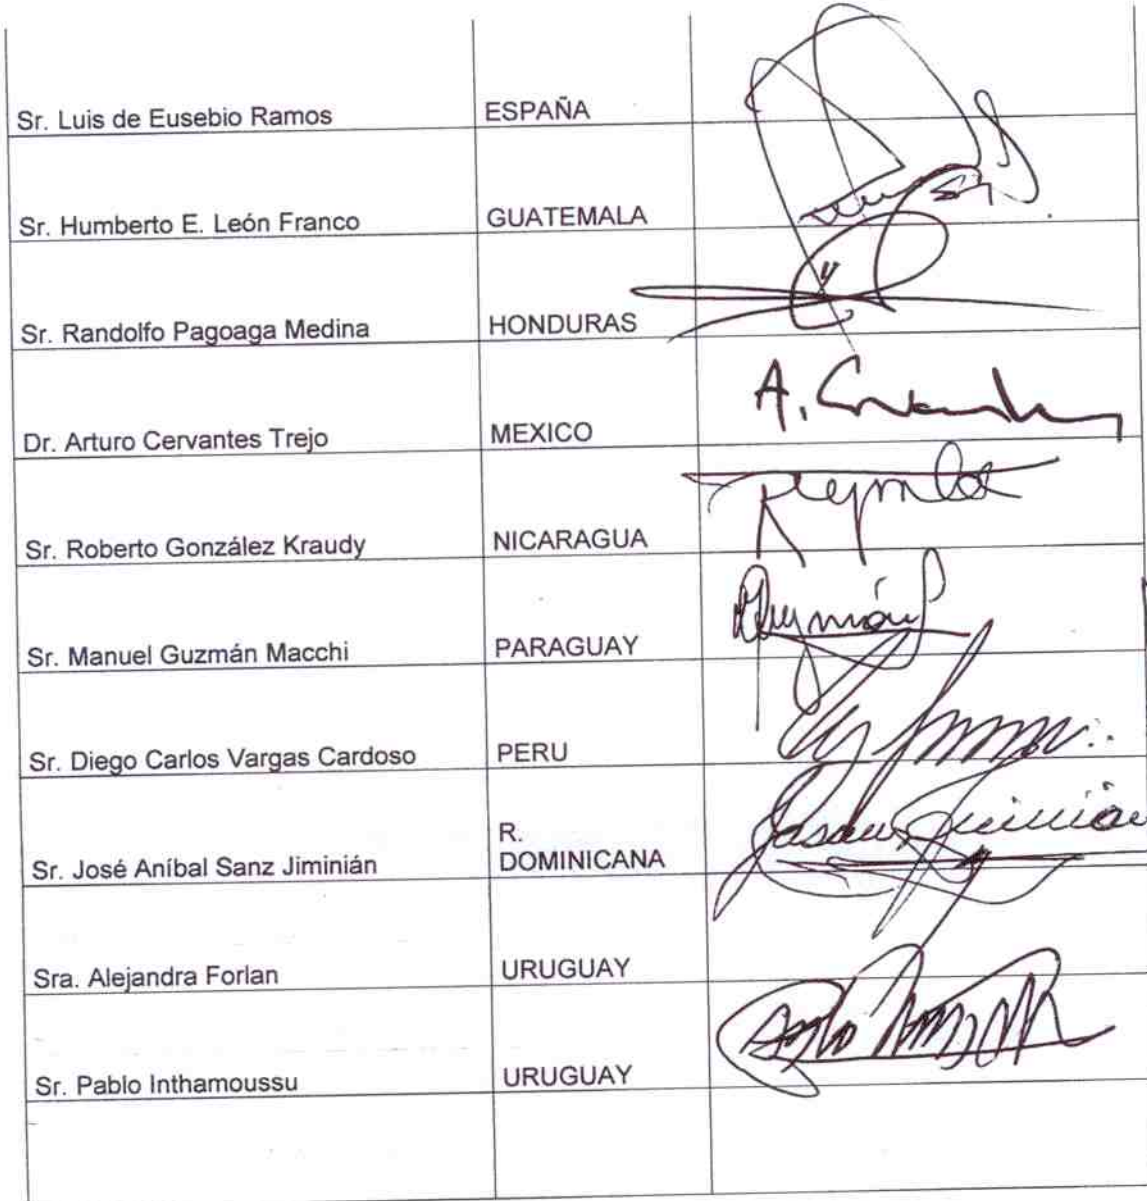 Sr. Luis de Eusebio Ramos ESPAÑA
Sr. Humberto E. León Franco GUATEMALA
Sr. Randolfo Pagoaga Medina HONDURAS
Dr. Arturo Cervantes Trejo MEXICO A.
Sr. Roberto González Kraudy NICARAGUA
Sr. Manuel Guzmán Macchi PARAGUAY
Sr. Diego Carlos Vargas Cardoso PERU
Sr. José Aníbal Sanz Jiminián R. DOMINICANA
Sra. Alejandra Forlan URUGUAY
Sr. Pablo Inthamoussu URUGUAY